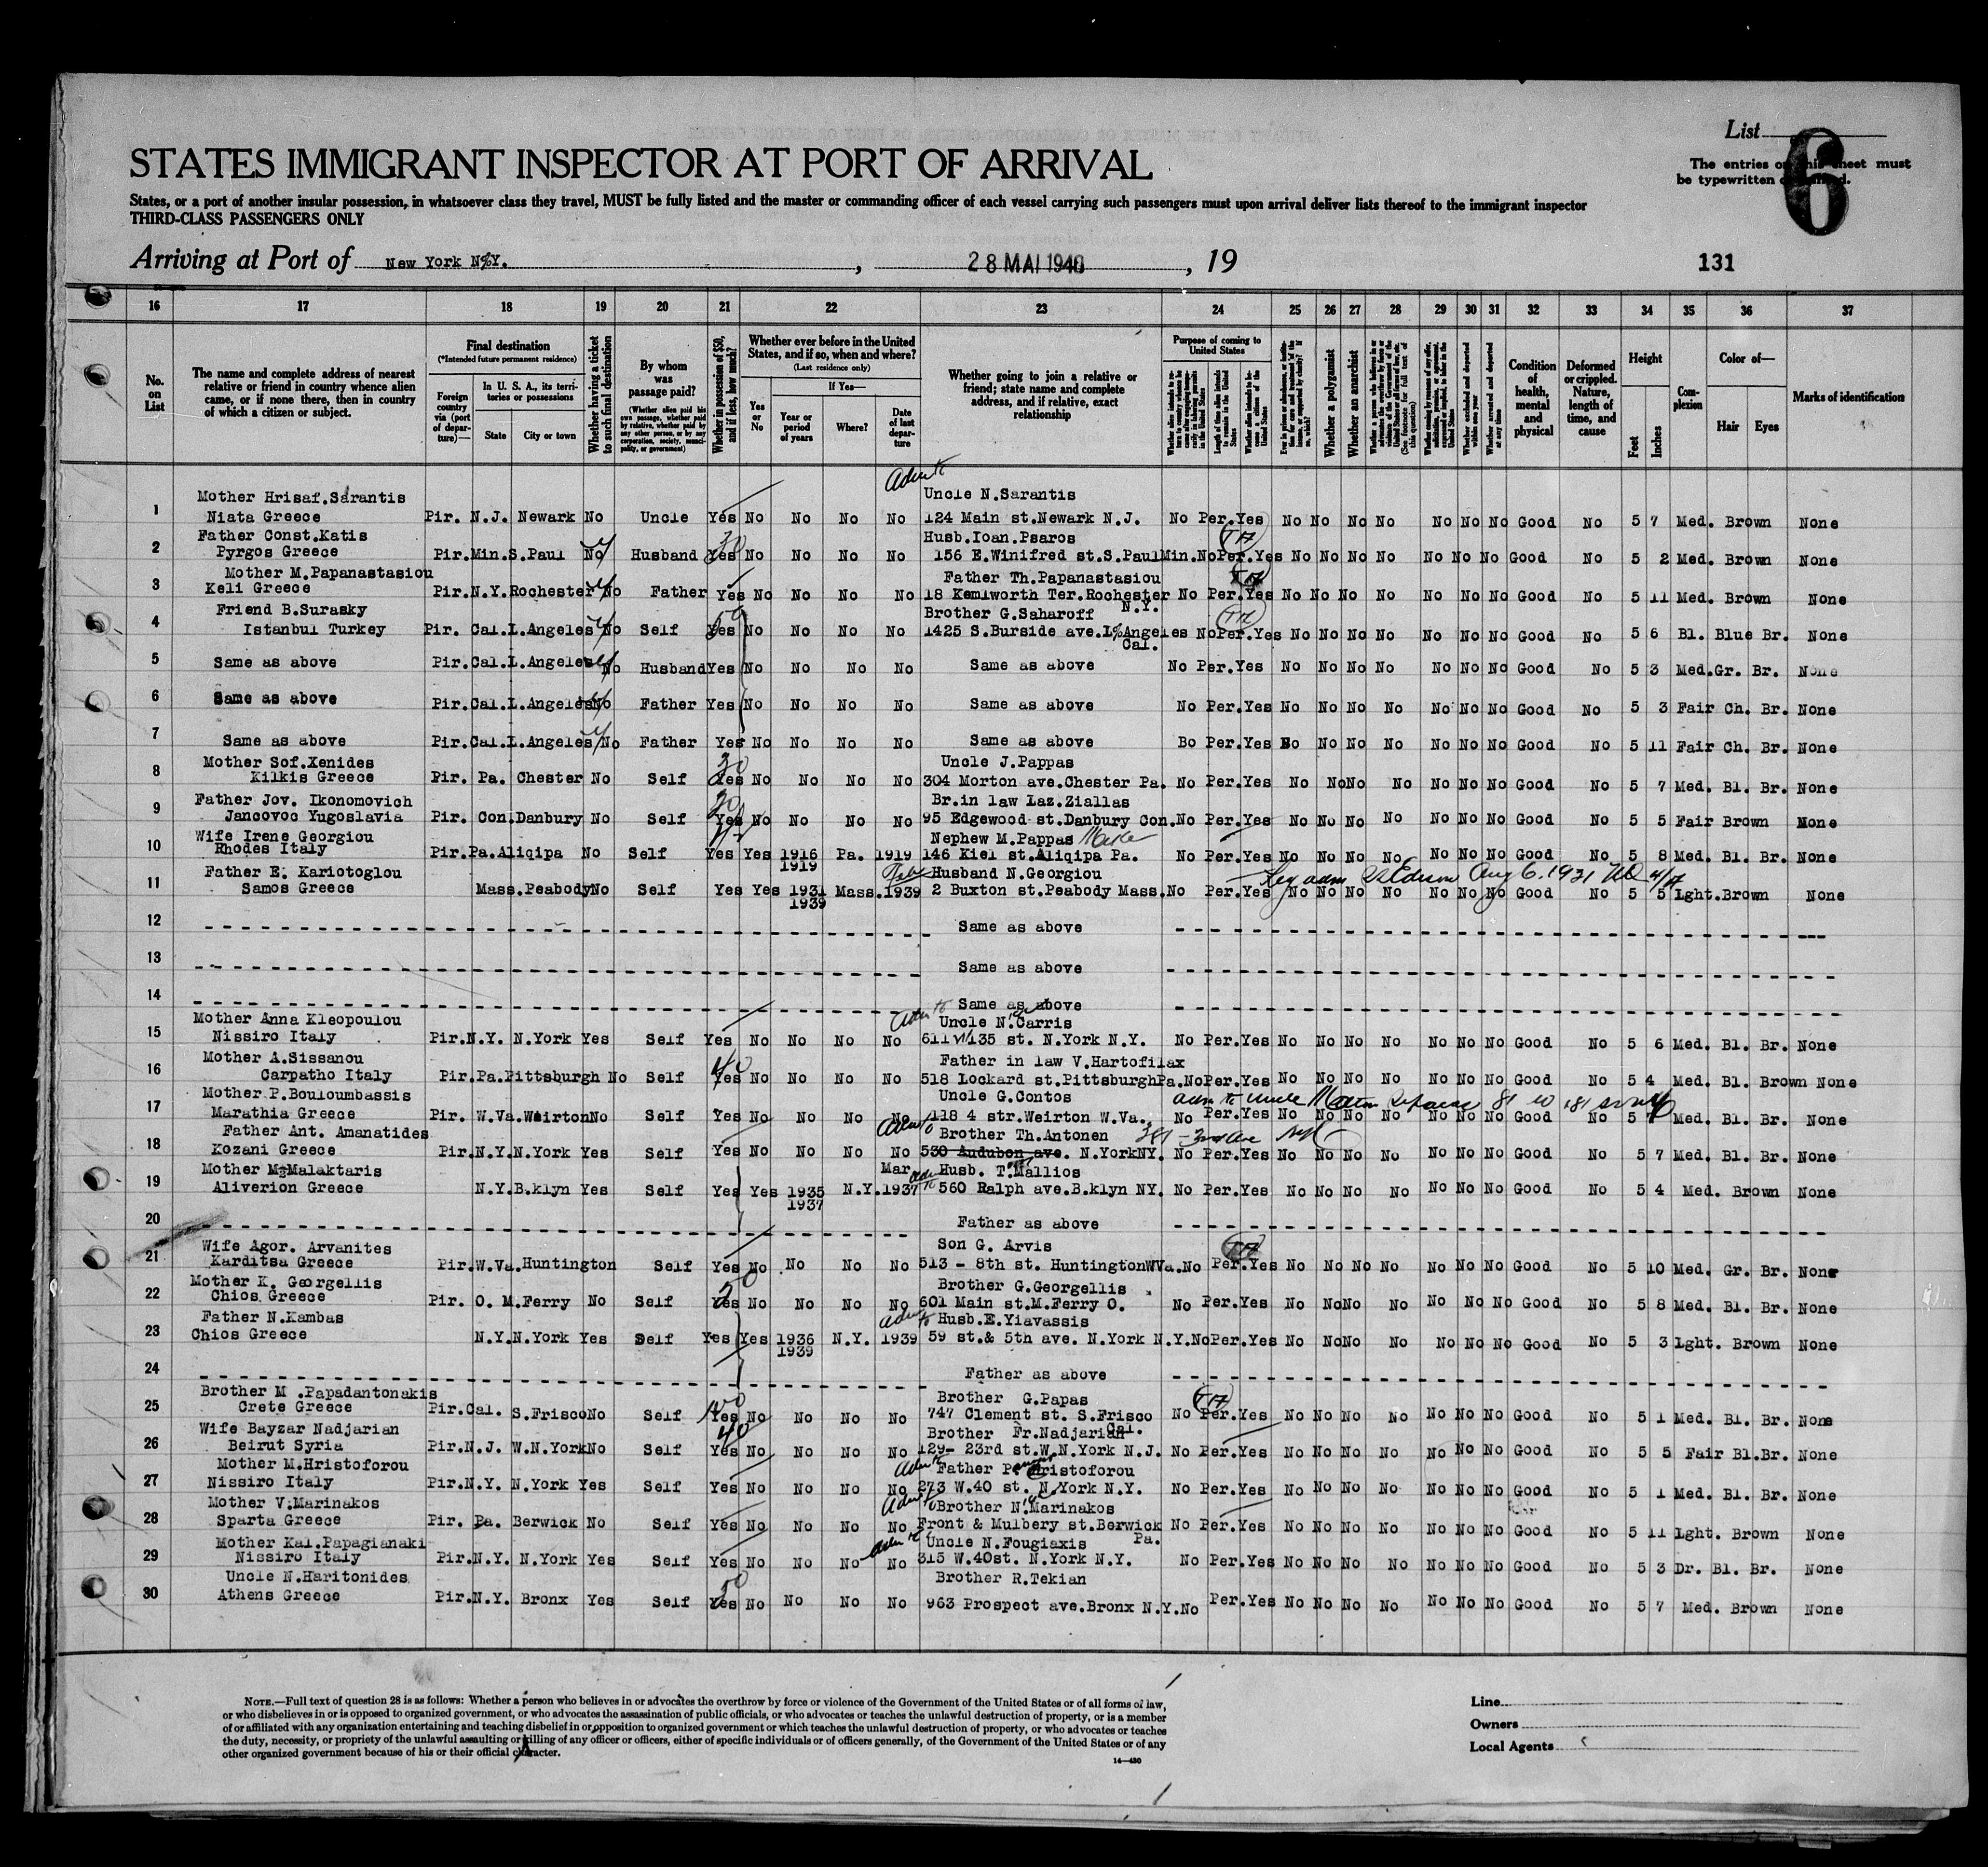 List
6
The entries on this sheet must
be typewritten or printed.
STATES IMMIGRANT INSPECTOR AT PORT OF ARRIVAL
States, or a port of another insular possession, in whatsoever class they travel, MUST be fully listed and the master or commanding officer of each vessel carrying such passengers must upon arrival deliver lists thereof to the immigrant inspector
THIRD-CLASS PASSENGERS ONLY
Arriving at Port of New York N.Y. , 28 MAI 1940 , 19
131
16 17 18 19 20 21 22 23 24 25 26 27 28 29 30 31 32 33 34 35 36 37
No. on List
The name and complete address of nearest relative or friend in country whence alien came, or if none there, then in country of which a citizen or subject.
Final destination
(*Intended future permanent residence)
Foreign country via (port of departure)—
In U. S. A., its territories or possessions
State
City or town
Whether having a ticket to such final destination
By whom was passage paid?
(Whether alien paid his own passage, whether paid by relative, whether paid by any other person, or by any corporation, society, municipality, or government)
Whether in possession of $50, and if less, how much?
Whether ever before in the United States, and if so, when and where?
(Last residence only)
Yes or No
If Yes—
Year or period of years
Where?
Date of last departure
Whether going to join a relative or friend; state name and complete address, and if relative, exact relationship
Purpose of coming to United States
Length of time alien intends to remain in the United States
Whether alien intends to become a citizen of the United States
Whether a polygamist
Whether an anarchist
Condition of health, mental and physical
Deformed or crippled. Nature, length of time, and cause
Height
Feet
Inches
Complexion
Color of—
Hair
Eyes
Marks of identification
Mother Hrisaf.Sarantis Uncle N.Sarantis
1 Niata Greece Pir. N.J. Newark No Uncle Yes No No No No 124 Main st.Newark N.J. No Per.Yes No No No No No No No Good No 5 7 Med. Brown None
Father Const.Katis Husb.Ioan.Psaros
2 Pyrgos Greece Pir.Min.S.Paul No Husband Yes 30 No No No No 156 E.Winifred st.S.PaulMin.NoPer.Yes No No No No No No No Good No 5 2 Med. Brown None
Mother M.Papanastasiou Father Th.Papanastasiou
3 Keli Greece Pir.N.Y.Rochester No Father Yes No No No No 18 Kemlworth Ter.Rochester N.Y. No Per.Yes No No No No No No No Good No 5 11 Med. Brown None
Friend B.Surasky Brother G.Saharoff
4 Istanbul Turkey Pir. Cal.L.Angeles No Self Yes 50 No No No No 1425 S.Burside ave.L.Angeles Cal. NoPer.Yes No No No No No No No Good No 5 6 Bl. Blue Br. None
5 Same as above Pir.Cal.L.Angeles No Husband Yes No No No No Same as above No Per.Yes No No No No No No No Good No 5 3 Med.Gr. Br. None
6 Same as above Pir.Cal.L.Angeles No Father Yes No No No No Same as above No Per.Yes No No No No No No No Good No 5 3 Fair Ch. Br. None
7 Same as above Pir.Cal.L.Angeles No Father Yes No No No No Same as above Bo Per.Yes No No No No No No No Good No 5 11 Fair Ch. Br. None
Mother Sof.Xenides Uncle J.Pappas
8 Kilkis Greece Pir. Pa. Chester No Self Yes 30 No No No No 304 Morton ave.Chester Pa. No Per.Yes No NoNo No No No No Good No 5 7 Med. Bl. Br. None
Father Jov. Ikonomovich Br.in law Laz.Ziallas
9 Jancovoc Yugoslavia Pir. Con.Danbury No Self Yes No No No No 95 Edgewood st.Danbury Con.No Per.Yes No No No No No No No Good No 5 5 Fair Brown None
Wife Irene Georgiou Nephew M.Pappas
10 Rhodes Italy Pir.Pa.Aliqipa No Self Yes Yes 1916 1919 Pa. 1919 146 Kiel st.Aliqipa Pa. No Per.Yes No No No No No No No Good No 5 8 Med. Bl. Br. None
Father E. Kariotoglou Husband N.Georgiou
11 Samos Greece Mass.Peabody No Self Yes Yes 1931 1939 Mass. 1939 2 Buxton st.Peabody Mass.No Per.Yes No No No No No No No Good No 5 5 Lght.Brown None
12 Same as above
13 Same as above
14 Same as above
Mother Anna Kleopoulou Uncle N.Carris
15 Nissiro Italy Pir.N.Y. N.York Yes Self Yes No No No No 611 W135 st. N.York N.Y. No Per.Yes No No No No No No No Good No 5 6 Med. Bl. Br. None
Mother A.Sissanou Father in law V.Hartofilax
16 Carpatho Italy Pir.Pa.Pittsburgh No Self Yes 40 No No No No 518 Lockard st.PittsburghPa.NoPer.Yes No No No No No No No Good No 5 4 Med. Bl. Brown None
Mother P.Bouloumbassis Uncle G.Contos
17 Marathia Greece Pir. W.Va.WeirtonNo Self Yes No No No No 118 4 str.Weirton W.Va. No Per.Yes No No No No No No No Good No 5 Med. Bl. Br. None
Father Ant. Amanatides Brother Th.Antonen 381 - 3rd Ave
18 Kozani Greece Pir.N.Y.N.York Yes Self Yes No No No No 530 Audubon ave. N.YorkNY. No Per.Yes No No No No No No No Good No 5 7 Med. Bl. Br. None
Mother M.Malaktaris Mar. Husb. T.Mallios
19 Aliverion Greece N.Y.B.klyn Yes Self Yes Yes 1935 1937 N.Y. 1937 560 Ralph ave.B.klyn NY. No Per.Yes No No No No No No No Good No 5 4 Med. Brown None
20 Father as above
Wife Agor. Arvanites Son G. Arvis
21 Karditsa Greece Pir.W.Va.Huntington Self Yes No No No No 513 - 8th st. HuntingtonWVa.No Per.Yes No No No No No No No Good No 5 10 Med. Gr. Br. None
Mother K. Georgellis Brother G.Georgellis
22 Chios Greece Pir. O. M.Ferry No Self Yes No No No No 601 Main st.M.Ferry O. No Per.Yes No NoNo No No No No Good No 5 8 Med. Bl. Br. None
Father N.Kambas Husb.E.Yiavassis
23 Chios Greece N.Y.N.York Yes Self Yes Yes 1936 1939 N.Y. 1939 59 st.& 5th ave. N.York N.Y.NoPer.Yes No NoNo No No No No Good No 5 3 Lght. Brown None
24 Father as above
Brother M .Papadantonakis Brother G.Papas
25 Crete Greece Pir.Cal. S.FriscoNo Self Yes No No No No 747 Clement st. S.Frisco Cal. No Per.Yes No No No No No No No Good No 5 1 Med. Bl. Br. None
Wife Bayzar Nadjarian Brother Fr.Nadjarian
26 Beirut Syria Pir.N.J. W.N.YorkNo Self Yes 40 No No No No 129- 23rd st.W.N.York N.J. No Per.Yes No No No No No No No Good No 5 5 Fair Bl.Br. None
Mother M.Hristoforou Father P. Hristoforou
27 Nissiro Italy Pir.N.Y. N.York Yes Self Yes No No No No 273 W.40 st. N.York N.Y. No Per.Yes No No No No No No No Good No 5 1 Med. Bl. Br. None
Mother V.Marinakos Brother N.Marinakos
28 Sparta Greece Pir. Pa. Berwick No Self Yes No No No No Front & Mulbery st.Berwick Pa. No Per.Yes No No No No No No No Good No 5 11 Lght. Brown None
Mother Kal.Papagianaki Uncle N.Fougiaxis
29 Nissiro Italy Pir.N.Y. N.York Yes Self Yes No No No No 315 W.40st. N.York N.Y. No Per.Yes No No No No No No No Good No 5 3 Dr. Bl. Br. None
Uncle N.Haritonides Brother R.Tekian
30 Athens Greece Pir.N.Y. Bronx Yes Self Yes 50 No No No No 963 Prospect ave.Bronx N.Y.No Per.Yes No No No No No No No Good No 5 7 Med. Brown None
NOTE.—Full text of question 28 is as follows: Whether a person who believes in or advocates the overthrow by force or violence of the Government of the United States or of all forms of law,
or who disbelieves in or is opposed to organized government, or who advocates the assassination of public officials, or who advocates or teaches the unlawful destruction of property, or is a member
of or affiliated with any organization entertaining and teaching disbelief in or opposition to organized government or which teaches the unlawful destruction of property, or who advocates or teaches
the duty, necessity, or propriety of the unlawful assaulting or killing of any officer or officers, either of specific individuals or of officers generally, of the Government of the United States or of any
other organized government because of his or their official character.
14—430
Line
Owners
Local Agents